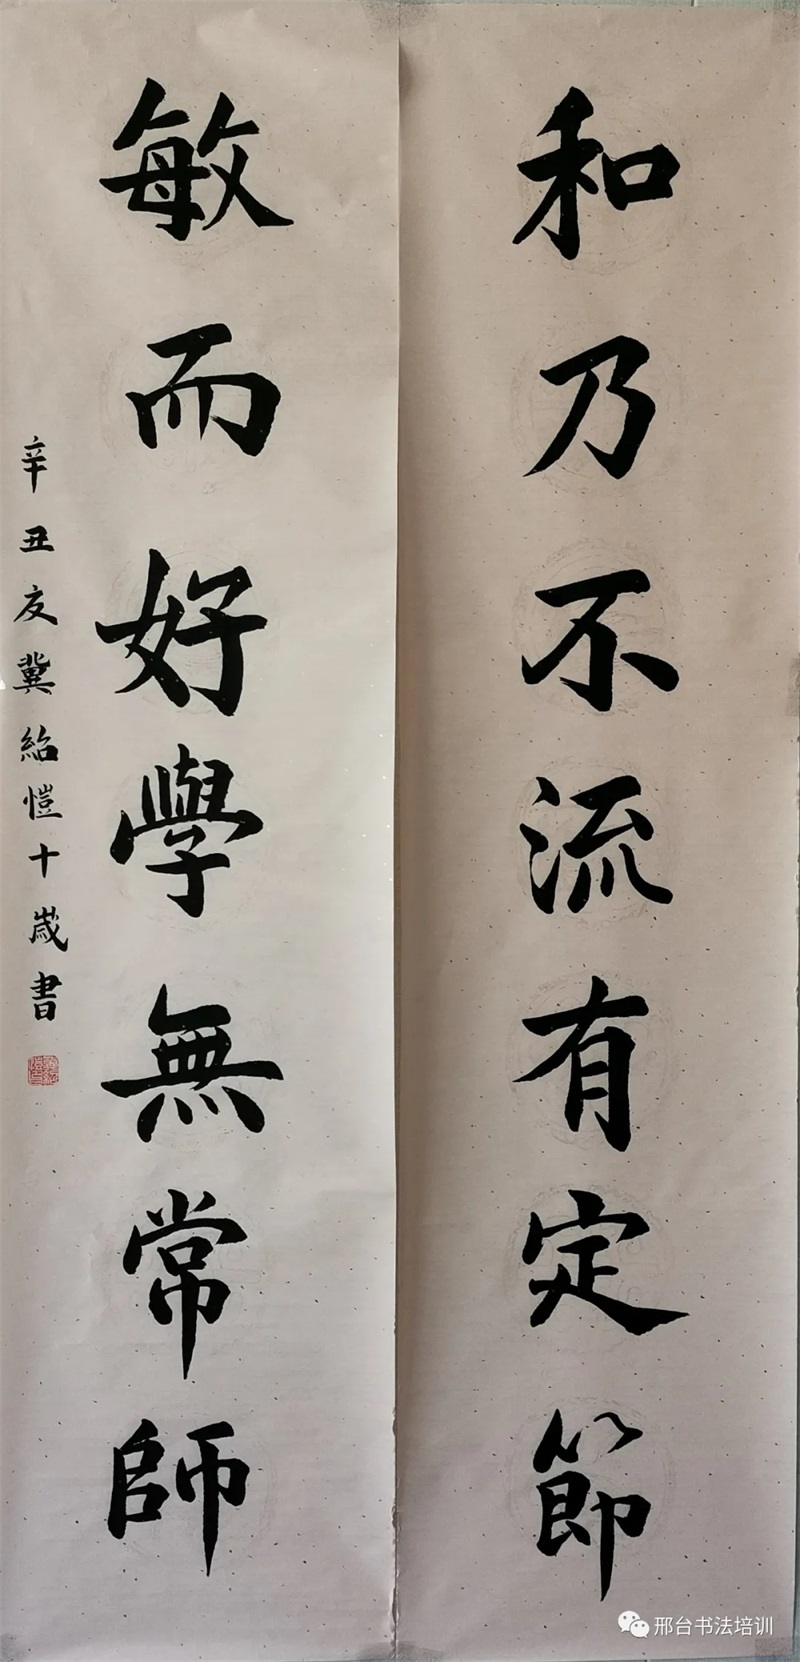 和乃不流有定節
敏而好學無常師
辛丑友冀紹愷十歲書
邢台书法培训